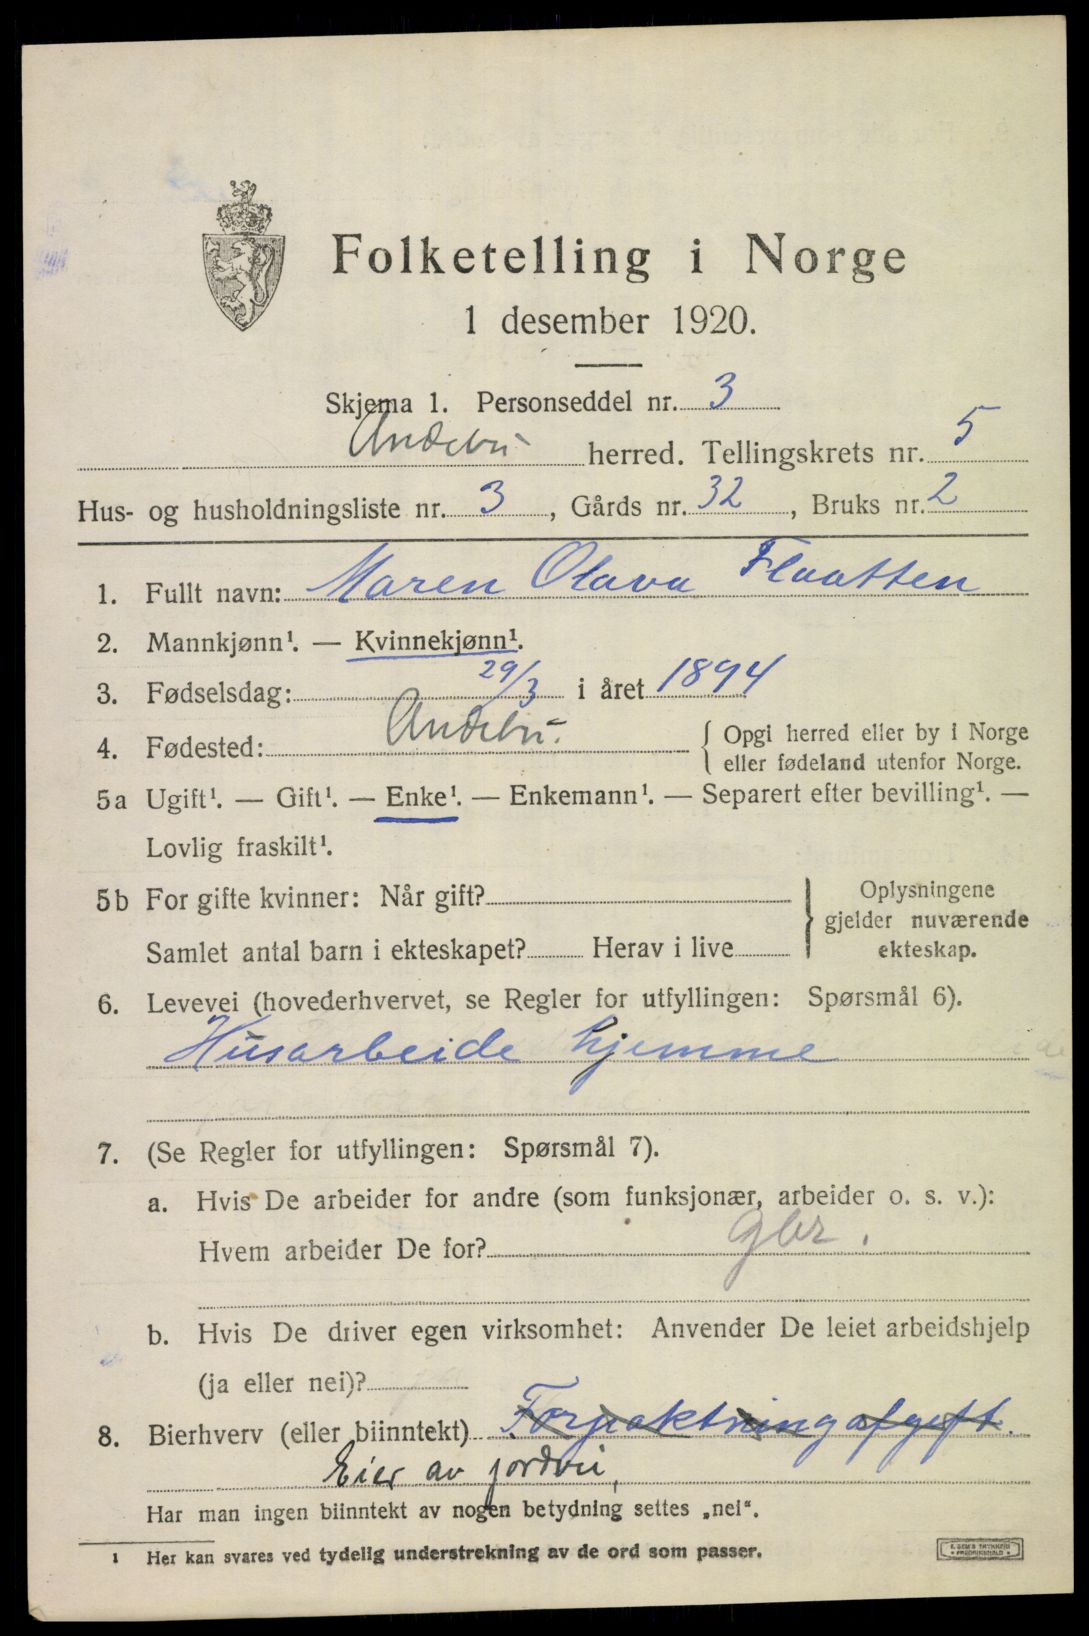 Folketelling i Norge
1 desember 1920.
Skjema 1. Personseddel nr. 3
Andebu herred. Tellingskrets nr. 5
Hus- og husholdningsliste nr. 3, Gårds nr. 32, Bruks nr. 2
1. Fullt navn: Maren Olava Flaatten
2. Mannkjønn¹. — Kvinnekjønn¹.
3. Fødselsdag: 29/3 i året 1894
4. Fødested: Andebu. { Opgi herred eller by i Norge
eller fødeland utenfor Norge.
5a Ugift¹. — Gift¹. — Enke¹. — Enkemann¹. — Separert efter bevilling¹. —
Lovlig fraskilt¹.
5b For gifte kvinner: Når gift?
Samlet antal barn i ekteskapet? Herav i live
} Oplysningene
gjelder nuværende
ekteskap.
6. Levevei (hovederhvervet, se Regler for utfyllingen: Spørsmål 6).
Husarbeide hjemme
7. (Se Regler for utfyllingen: Spørsmål 7).
a. Hvis De arbeider for andre (som funksjonær, arbeider o. s. v.):
Hvem arbeider De for? Gbr.
b. Hvis De driver egen virksomhet: Anvender De leiet arbeidshjelp
(ja eller nei)?
8. Bierhverv (eller biinntekt) Forpaktningafgift.
Eier av jordvei,
Har man ingen biinntekt av nogen betydning settes „nei“.
¹ Her kan svares ved tydelig understrekning av de ord som passer.
E. SEM'S TRYKKERI
• FREDRIKSHALD •